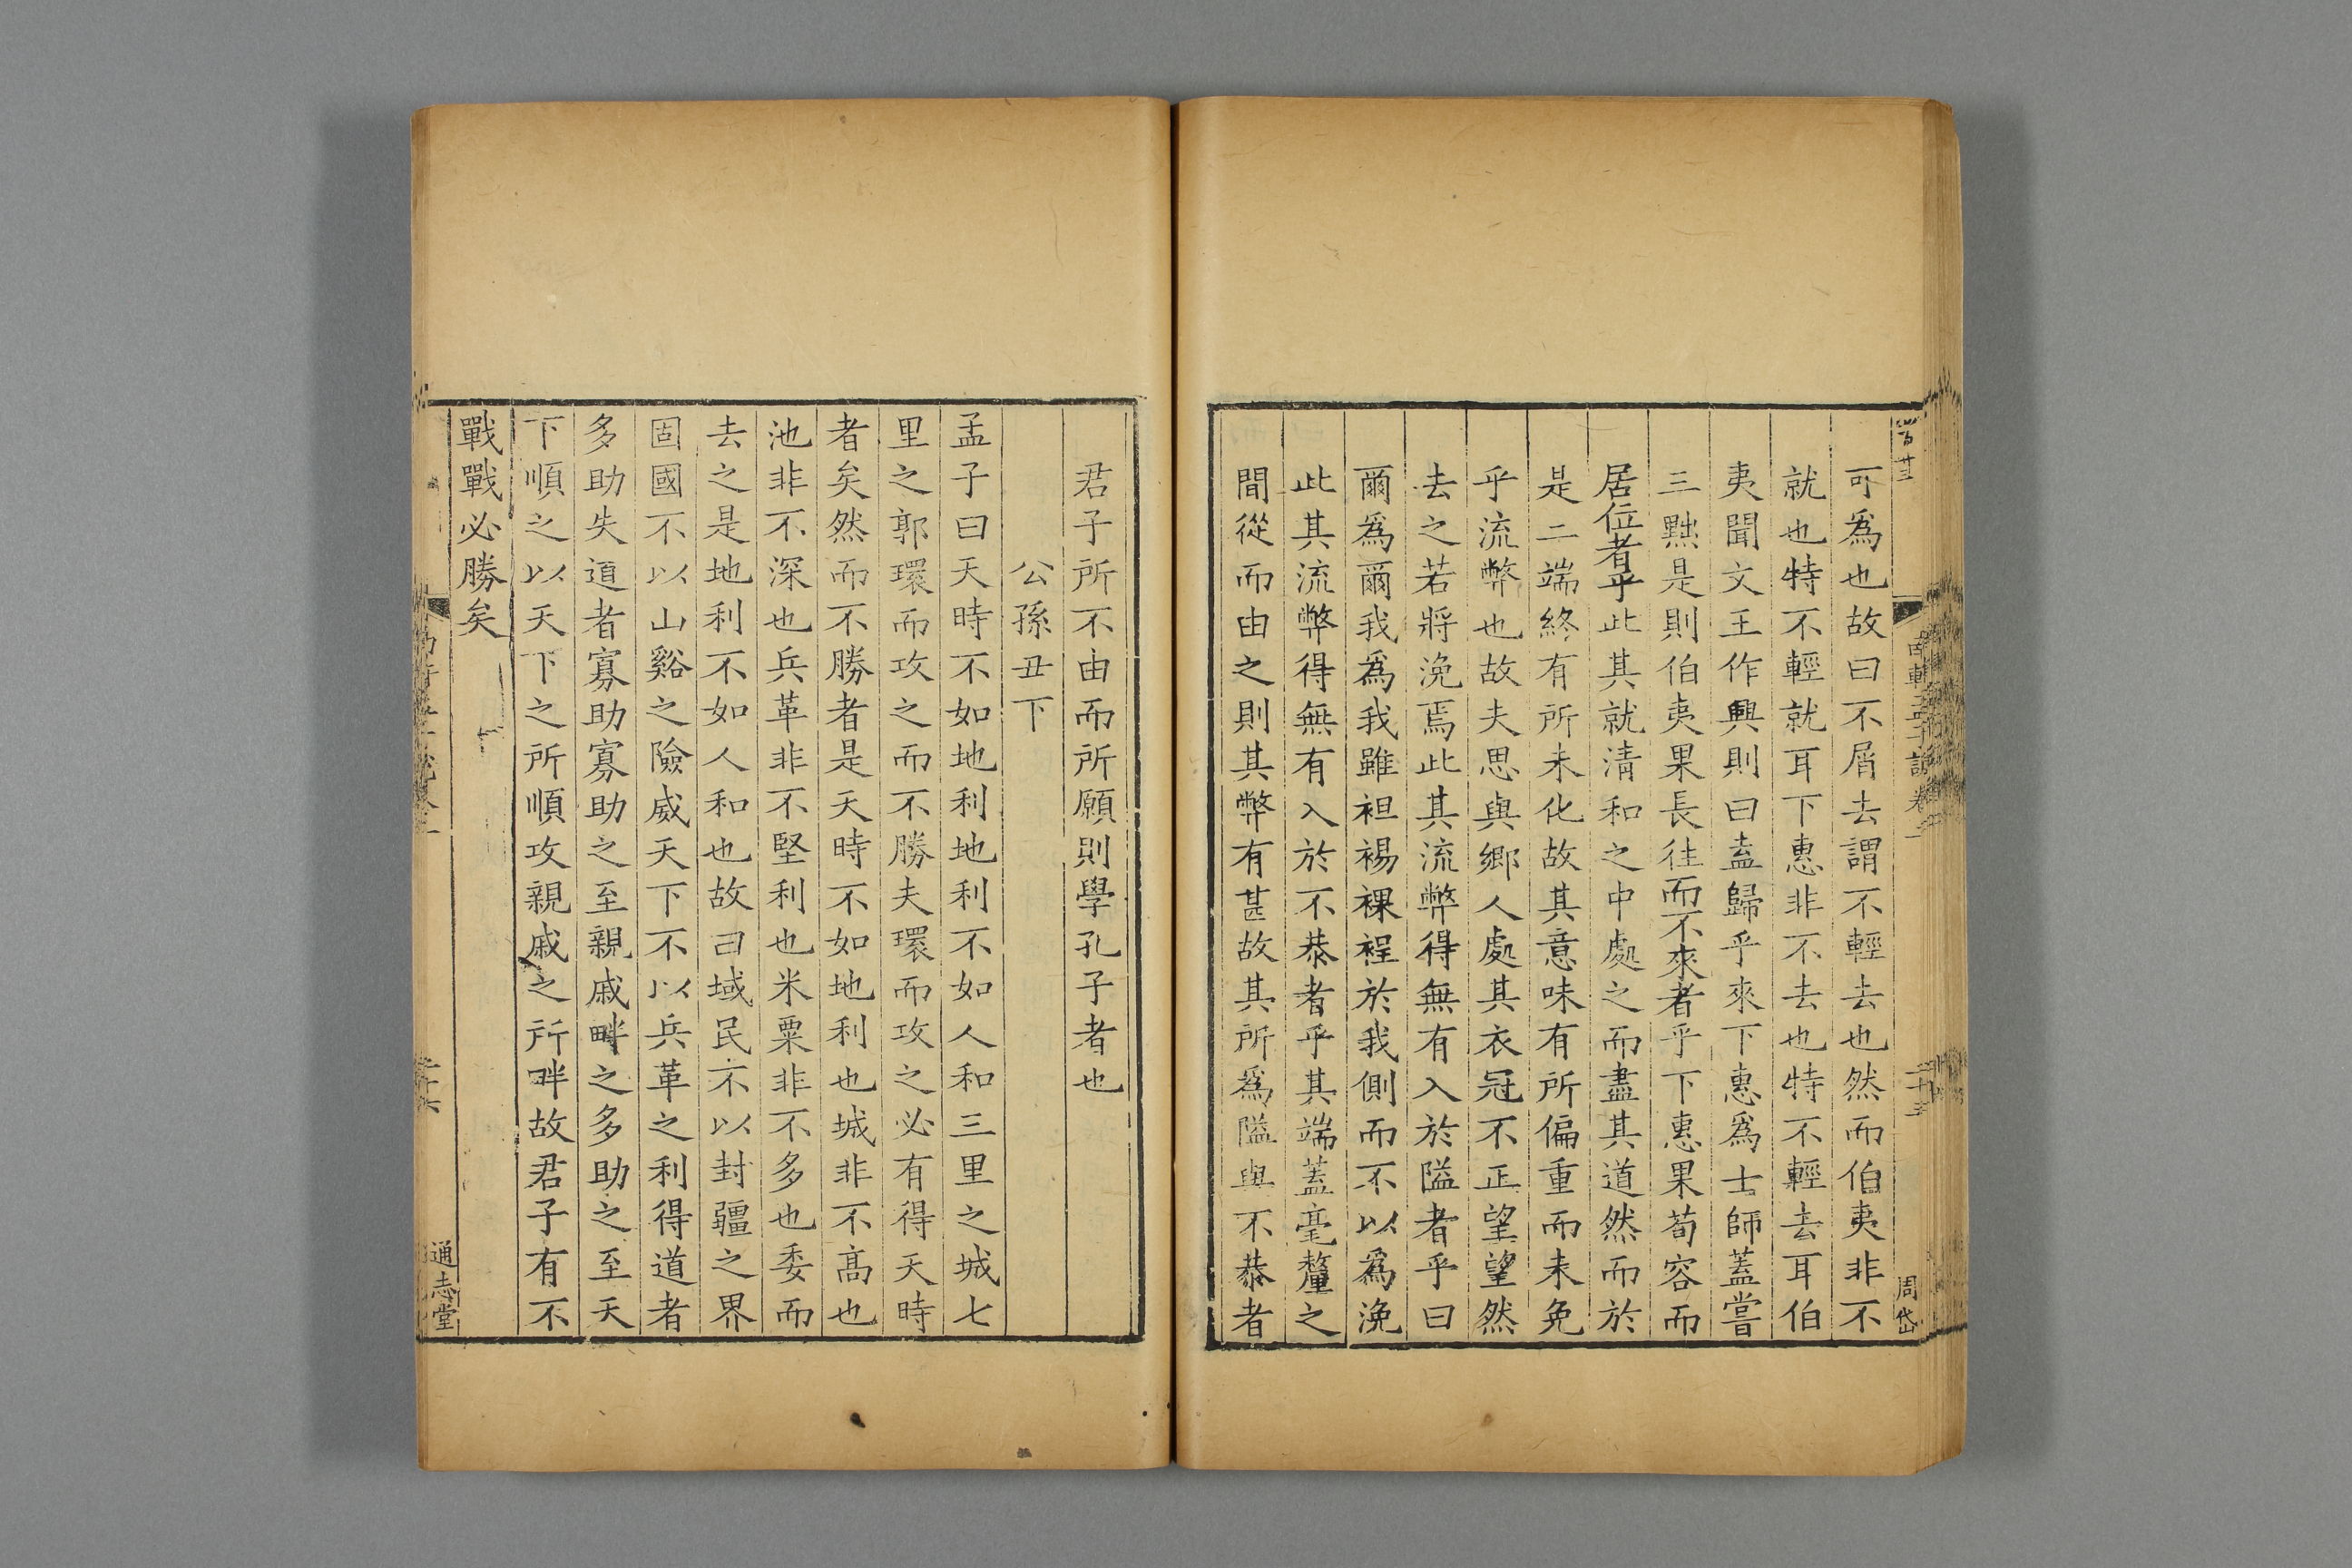 可爲也故曰不屑去謂不輕去也然而伯夷非不
就也特不輕就耳下惠非不去也特不輕去耳伯
夷聞文王作興則曰盍歸乎來下惠爲士師蓋嘗
三黜是則伯夷果長往而不來者乎下惠果苟容而
居位者乎此其就淸和之中處之而盡其道然而於
是二端終有所未化故其意味有所偏重而未免
乎流弊也故夫思與鄉人處其衣冠不正望望然
去之若將浼焉此其流弊得無有入於隘者乎曰
爾爲爾我爲我雖袒裼裸裎於我側而不以爲浼
此其流弊得無有入於不恭者乎其端蓋毫釐之
間從而由之則其弊有甚故其所爲隘與不恭者
周岱
君子所不由而所願則學孔子者也
公孫丑下
孟子曰天時不如地利地利不如人和三里之城七
里之郭環而攻之而不勝夫環而攻之必有得天時
者矣然而不勝者是天時不如地利也城非不高也
池非不深也兵革非不堅利也米粟非不多也委而
去之是地利不如人和也故曰域民不以封疆之界
固國不以山谿之險威天下不以兵革之利得道者
多助失道者寡助寡助之至親戚畔之多助之至天
下順之以天下之所順攻親戚之所畔故君子有不
戰戰必勝矣
通志堂